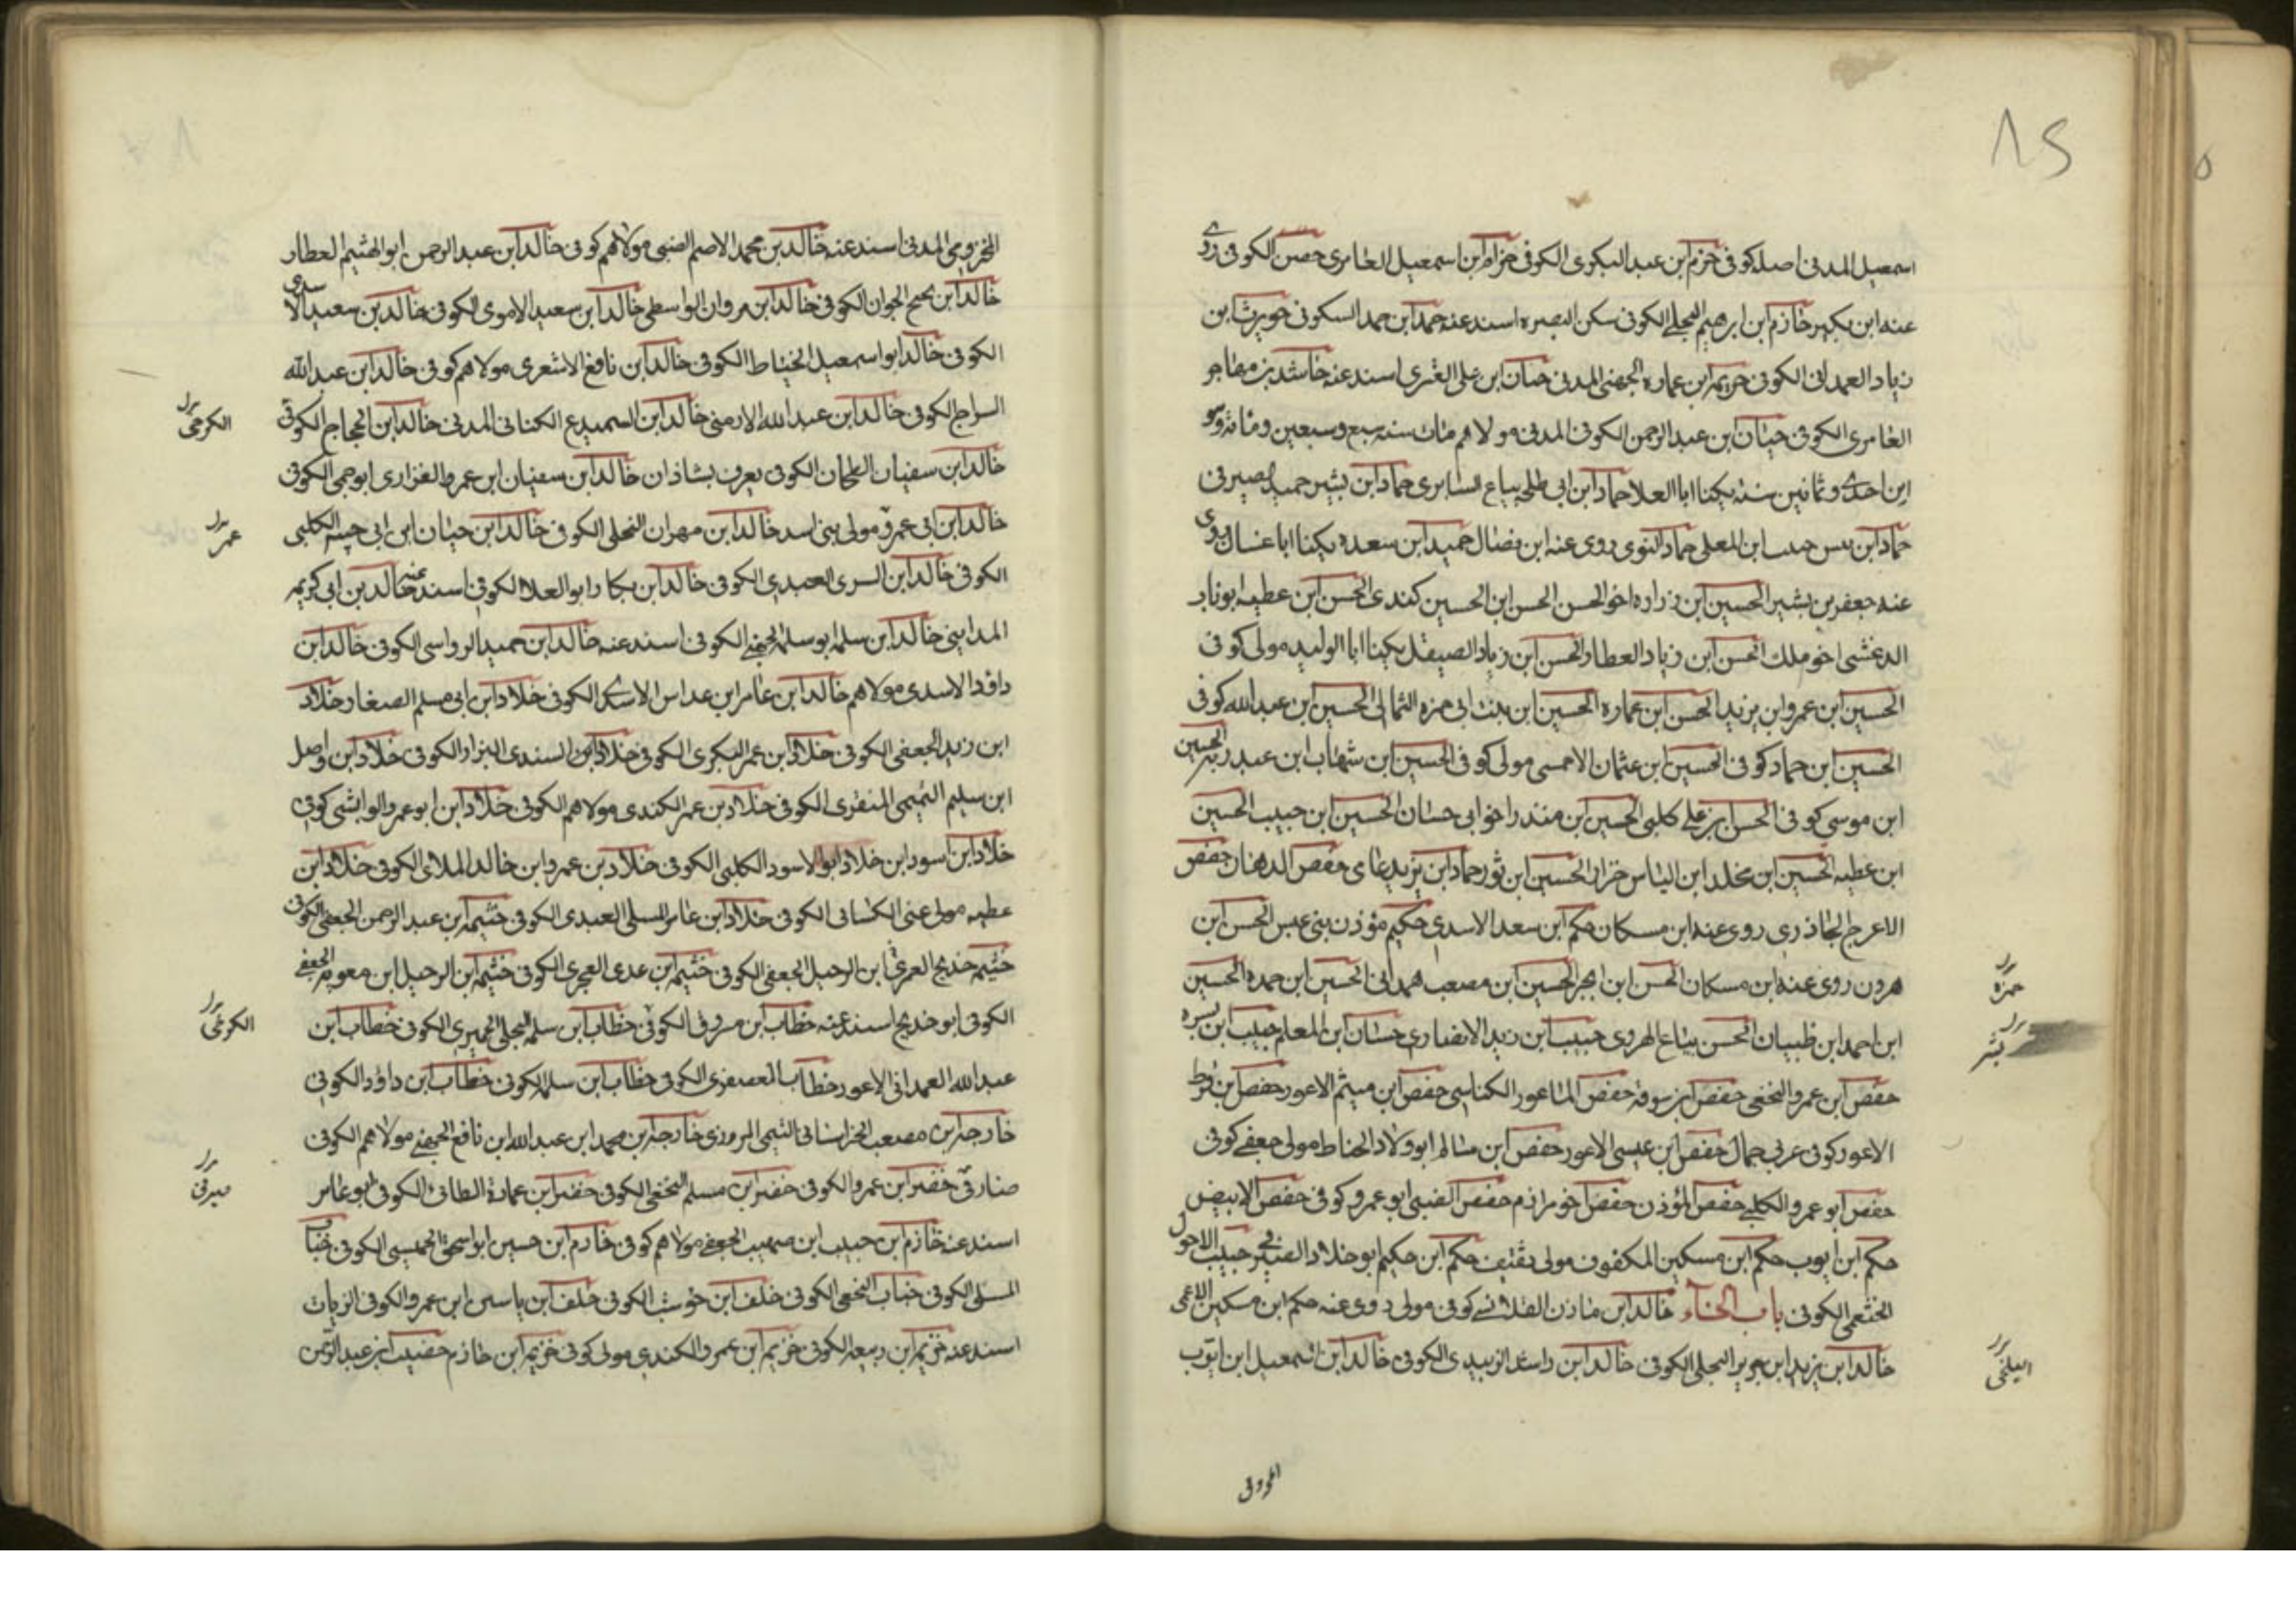 ٨٥
اسمعيل المدنى اصله كوفى خزم ابن عبد البكرى الكوفى حزام ابن اسمعيل العامرى حصن الكوفى روى
عنه ابن بكير خازم ابن ابرهيم البجلى الكوفى سكن البصره اسند عنه حمد ابن حمد السكونى حويرث ابن
زياد العمدانى الكوفى خزيمه ابن عماره الجهنى المدنى حنان ابن على العنزى اسند عنه حاشد بن مهاجر
العامرى الكوفى حيان ابن عبد الرحمن الكوفى المدنى مولاهم مات سنه سبع وسبعين ومائة وهو
ابن احدى وثمانين سنه يكنا ابا العلا حماد ابن ابى طلحه بياع السابرى حماد ابن بشير حميد الصيرفى
حماد ابن المعلى حماد النوى روى عنه ابن فضال حميد ابن سعده يكنا ابا غسان روى
عنه جعفر بن بشير الحسين ابن زراره اخو الحسن الحسن ابن الحسين كندى الحسن ابن عطيه ابو ناب
الدغشى اخو ملك الحسن ابن زياد العطار الحسن ابن زياد الصيقل يكنا ابا الوليد مولى كوفى
الحسين ابن عمرو ابن يزيد الحسن ابن عماره الحسين ابن بنت ابى حمزه الثمالى الحسين ابن عبد الله كوفى
الحسين ابن حماد كوفى الحسين ابن عثمان الاحمسى مولى كوفى الحسين ابن شهاب ابن عبد ربه الحسين
ابن موسى كوفى الحسن ابن على كلبى الحسين ابن منذر اخو ابى حسان الحسين ابن حبيب الحسين
ابن عطيه الحسين ابن مخلد ابن الياس خزاز الحسين ابن ثور حماد ابن يزيد عامى حفص الدهان حفص
الاعرج الجاذرى روى عنه ابن مسكان حكم ابن سعد الاسدى حكيم مؤذن بنى عبس الحسن ابن
هرون روى عنه ابن مسكان الحسن ابن ابجر الحسين ابن مصعب همدانى الحسين ابن حمده الحسين
حمزة
ابن احمد ابن ظبيان الحسن بياع الهروى حبيب ابن زيد الانصارى حسان ابن المعلم حبيب ابن بسره
بشر
حفص ابن عمرو النخعى حفص ابن سوقه حفص الماعور الكناسى حفص ابن ميثم الاعور حفص ابن قرط
الاعور كوفى عربى جمال حفص ابن عيسى الاعور حفص ابن سالم ابو ولاد الحناط مولى جعفى كوفى
حفص ابو عمرو الكلبى حفص المؤذن حفص اخو مرازم حفص الضبى ابو عمرو كوفى حفص الابيض
حكم ابن ايوب حكم ابن مسكين المكفوف مولى ثقيف حكم ابن حكيم ابو خلاد الصيرفى حبيب الاحول
الخثعمى الكوفى باب الخاء خالد ابن مازن القلانسى كوفى مولى روى عنه حكم ابن مسكين الاعمى
خالد ابن يزيد ابن جرير البجلى الكوفى خالد ابن راشد الزبيدى الكوفى خالد ابن اسمعيل ابن ايوب
المخزومى المدنى اسند عنه خالد بن محمد الاصم الضبى مولاهم كوفى خالد ابن عبد الرحمن ابو الهثيم العطار
خالد ابن نجيح الجوان الكوفى خالد ابن مروان الواسطى خالد ابن سعيد الاموى الكوفى خالد بن سعيد الاسدى
الكوفى خالد ابو اسمعيل الخياط الكوفى خالد ابن نافع الاشعرى مولاهم كوفى خالد ابن عبد الله
السراج الكوفى خالد ابن عبد الله الارمنى خالد ابن السميدع الكنانى المدنى خالد ابن الحجاج الكوفى
الكرخى
خالد ابن سفيان الطحان الكوفى يعرف بشاذان خالد ابن سفيان ابن عمر والفزارى ابو حمى الكوفى
خالد ابن ابى عمرو مولى بنى اسد خالد ابن مهران البجلى الكوفى خالد ابن حيان ابن ابى حيه الكلبى
عمر
الكوفى خالد ابن السرى العبدى الكوفى خالد ابن بكار ابو العلا الكوفى اسند عنه خالد بن ابى كريمه
المداينى خالد ابن سلمه ابو سلمة الجهنى الكوفى اسند عنه خالد ابن حميد الرواسى الكوفى خالد ابن
داؤد الاسدى مولاهم خالد ابن عامر ابن عداس الاسدى الكوفى خلاد ابن ابى مسلم الصفار خلاد
ابن زيد الجعفى الكوفى خلاد ابن عمر البكرى الكوفى خلاد ابن السندى البزاز الكوفى خلاد ابن واصل
ابن سليم التميمى المنقرى الكوفى خلاد بن عمر الكندى مولاهم الكوفى خلاد ابن ابو عمرو الوابشى كوفى
خلاد ابن اسود ابن خلاد ابو الاسود الكلبى الكوفى خلاد بن عمرو ابن خالد الملائى الكوفى خلاد ابن
عطيه مولى غنى الكسانى الكوفى خلاد ابن عامر المسلى العبدى الكوفى خثيمه ابن عبد الرحمن الجعفى الكوفى
خثيمه خديج العرفى ابن الرحيل الجعفى الكوفى خثيمه ابن عدى الهجرى الكوفى خثيمه ابن الرحيل ابن معويه الجعفى
الكوفى ابو خديج اسند عنه خطاب ابن مسروق الكوفى خطاب ابن سلمه البجلى الحميرى الكوفى خطاب ابن
عبد الله العمدانى الاعور خطاب العصفرى الكوفى خطاب ابن سلمه الكوفى خطاب ابن داؤد الكوفى
خارجه ابن مصعب الخراسانى التيمى المروزى خارجه ابن محمد ابن عبد الله ابن نافع الجهنى مولاهم الكوفى
صنارفى خضر ابن عمرو الكوفى خضر ابن مسلم النخعى الكوفى خضر ابن عمارة الطائى الكوفى ابو عامر
صيرفى
اسند عنه خازم ابن حبيب ابن صهيب الجعفى مولاهم كوفى خازم ابن حسين ابو اسحق الحميسى الكوفى خباب
المسلى الكوفى خباب النخعى الكوفى خلف ابن حوشب الكوفى خلف ابن ياسين ابن عمرو الكوفى الزيات
اسند عنه خزيم ابن ربيعه الكوفى خزيم ابن عمرو الكندى مولى كوفى خزيم ابن خازم خضيب ابن عبد الرحمن